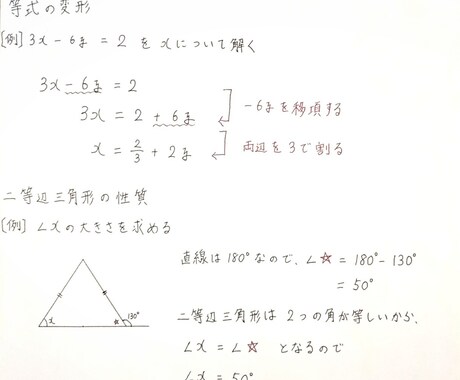 等式の変形
[例] 3x - 6y = 2 を xについて解く
3x - 6y = 2
3x = 2 + 6y
-6yを移項する
x = 2/3 + 2y
両辺を3で割る
二等辺三角形の性質
[例] ∠xの大きさを求める
直線は180°なので、∠☆ = 180° - 130°
= 50°
二等辺三角形は 2つの角が等しいから、
∠x = ∠☆ となるので
∠x = 50°
x ☆ 130°